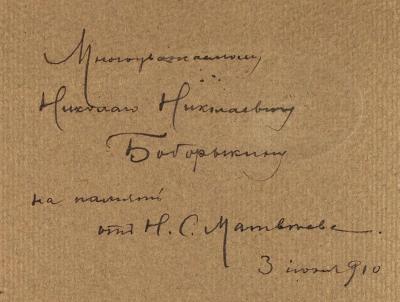 Многоуважаемому
Николаю Николаевичу
Боборыкину
на память
отъ Н. С. Матвѣева.
3 іюля 910